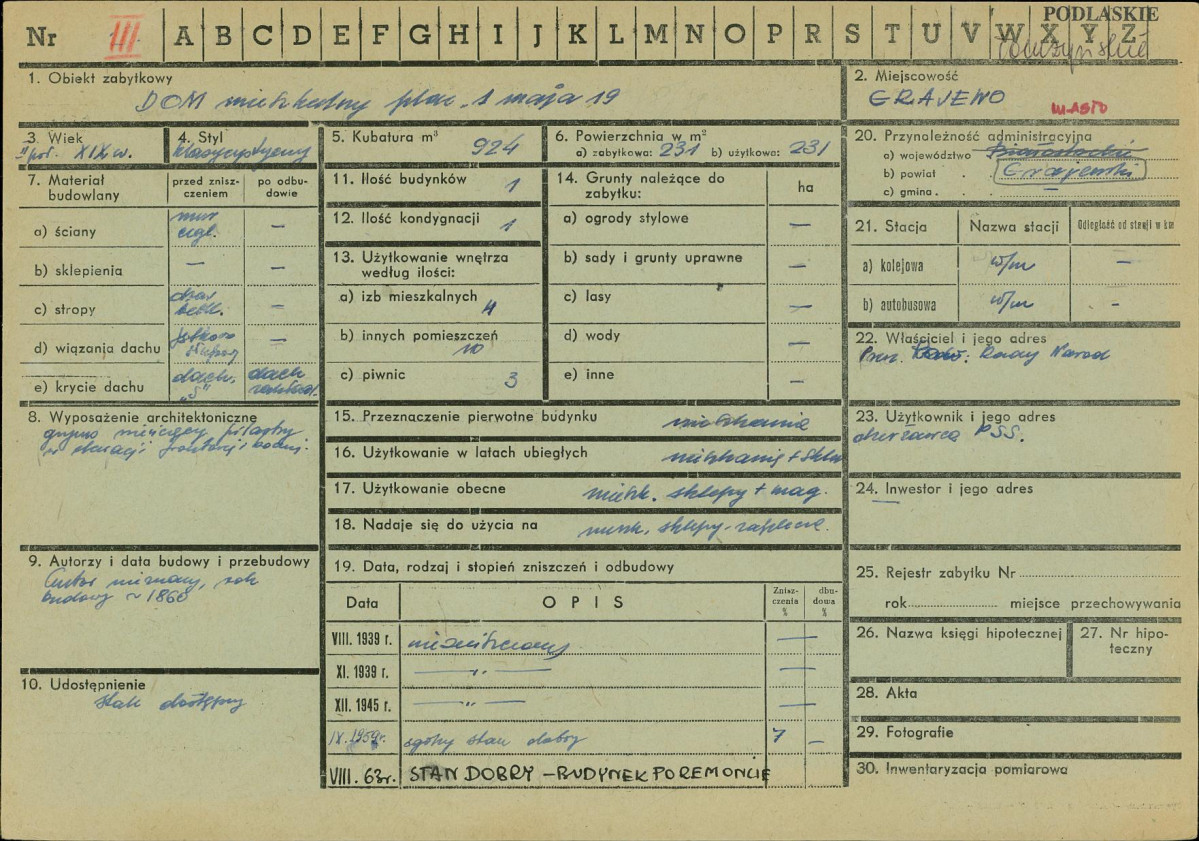 Nr III A B C D E F G H I J K L M N O P R S T U V W X Y Z
PODLASKIE
Łomżyńskie
1. Obiekt zabytkowy
DOM mieszkalny plac 1 maja 19
2. Miejscowość
GRAJEWO
MIASTO
3. Wiek
II poł. XIX w.
4. Styl
klasycystyczny
5. Kubatura m³ 924
6. Powierzchnia w m²
a) zabytkowa: 231 b) użytkowa: 231
7. Materiał budowlany
przed zniszczeniem
po odbudowie
a) ściany mur cegl. —
b) sklepienia — —
c) stropy drew belk. —
d) wiązania dachu —
e) krycie dachu dach. „S" dach
8. Wyposażenie architektoniczne
pilastry
w elewacji frontowej i boczn.
9. Autorzy i data budowy i przebudowy
Autor nieznany, rok
budowy ~ 1860
10. Udostępnienie
stale dostępny
11. Ilość budynków 1
12. Ilość kondygnacji 1
13. Użytkowanie wnętrza
według ilości:
a) izb mieszkalnych 4
b) innych pomieszczeń 10
c) piwnic 3
14. Grunty należące do
zabytku:
ha
a) ogrody stylowe —
b) sady i grunty uprawne —
c) lasy —
d) wody —
e) inne —
15. Przeznaczenie pierwotne budynku mieszkanie
16. Użytkowanie w latach ubiegłych mieszkanie + sklep
17. Użytkowanie obecne mieszk. sklepy + mag.
18. Nadaje się do użycia na mieszk. sklepy - zaplecze.
19. Data, rodzaj i stopień zniszczeń i odbudowy
Data OPIS Zniszczenia % dbudowa %
VIII. 1939 r. niezniszczony —
XI. 1939 r. — „ — —
XII. 1945 r. — „ — —
IX. 1959 r. ogólny stan dobry 7 —
VIII. 63r. STAN DOBRY – BUDYNEK PO REMONCIE
20. Przynależność administracyjna
a) województwo Białostockie
b) powiat . . Grajewski
c) gmina . .
21. Stacja Nazwa stacji Odległość od stacji w km
a) kolejowa w/m —
b) autobusowa w/m —
22. Właściciel i jego adres
Prez. Rady Narod
23. Użytkownik i jego adres
dzierżawca PSS.
24. Inwestor i jego adres
—
25. Rejestr zabytku Nr
rok miejsce przechowywania
26. Nazwa księgi hipotecznej
27. Nr hipoteczny
28. Akta
29. Fotografie
30. Inwentaryzacja pomiarowa